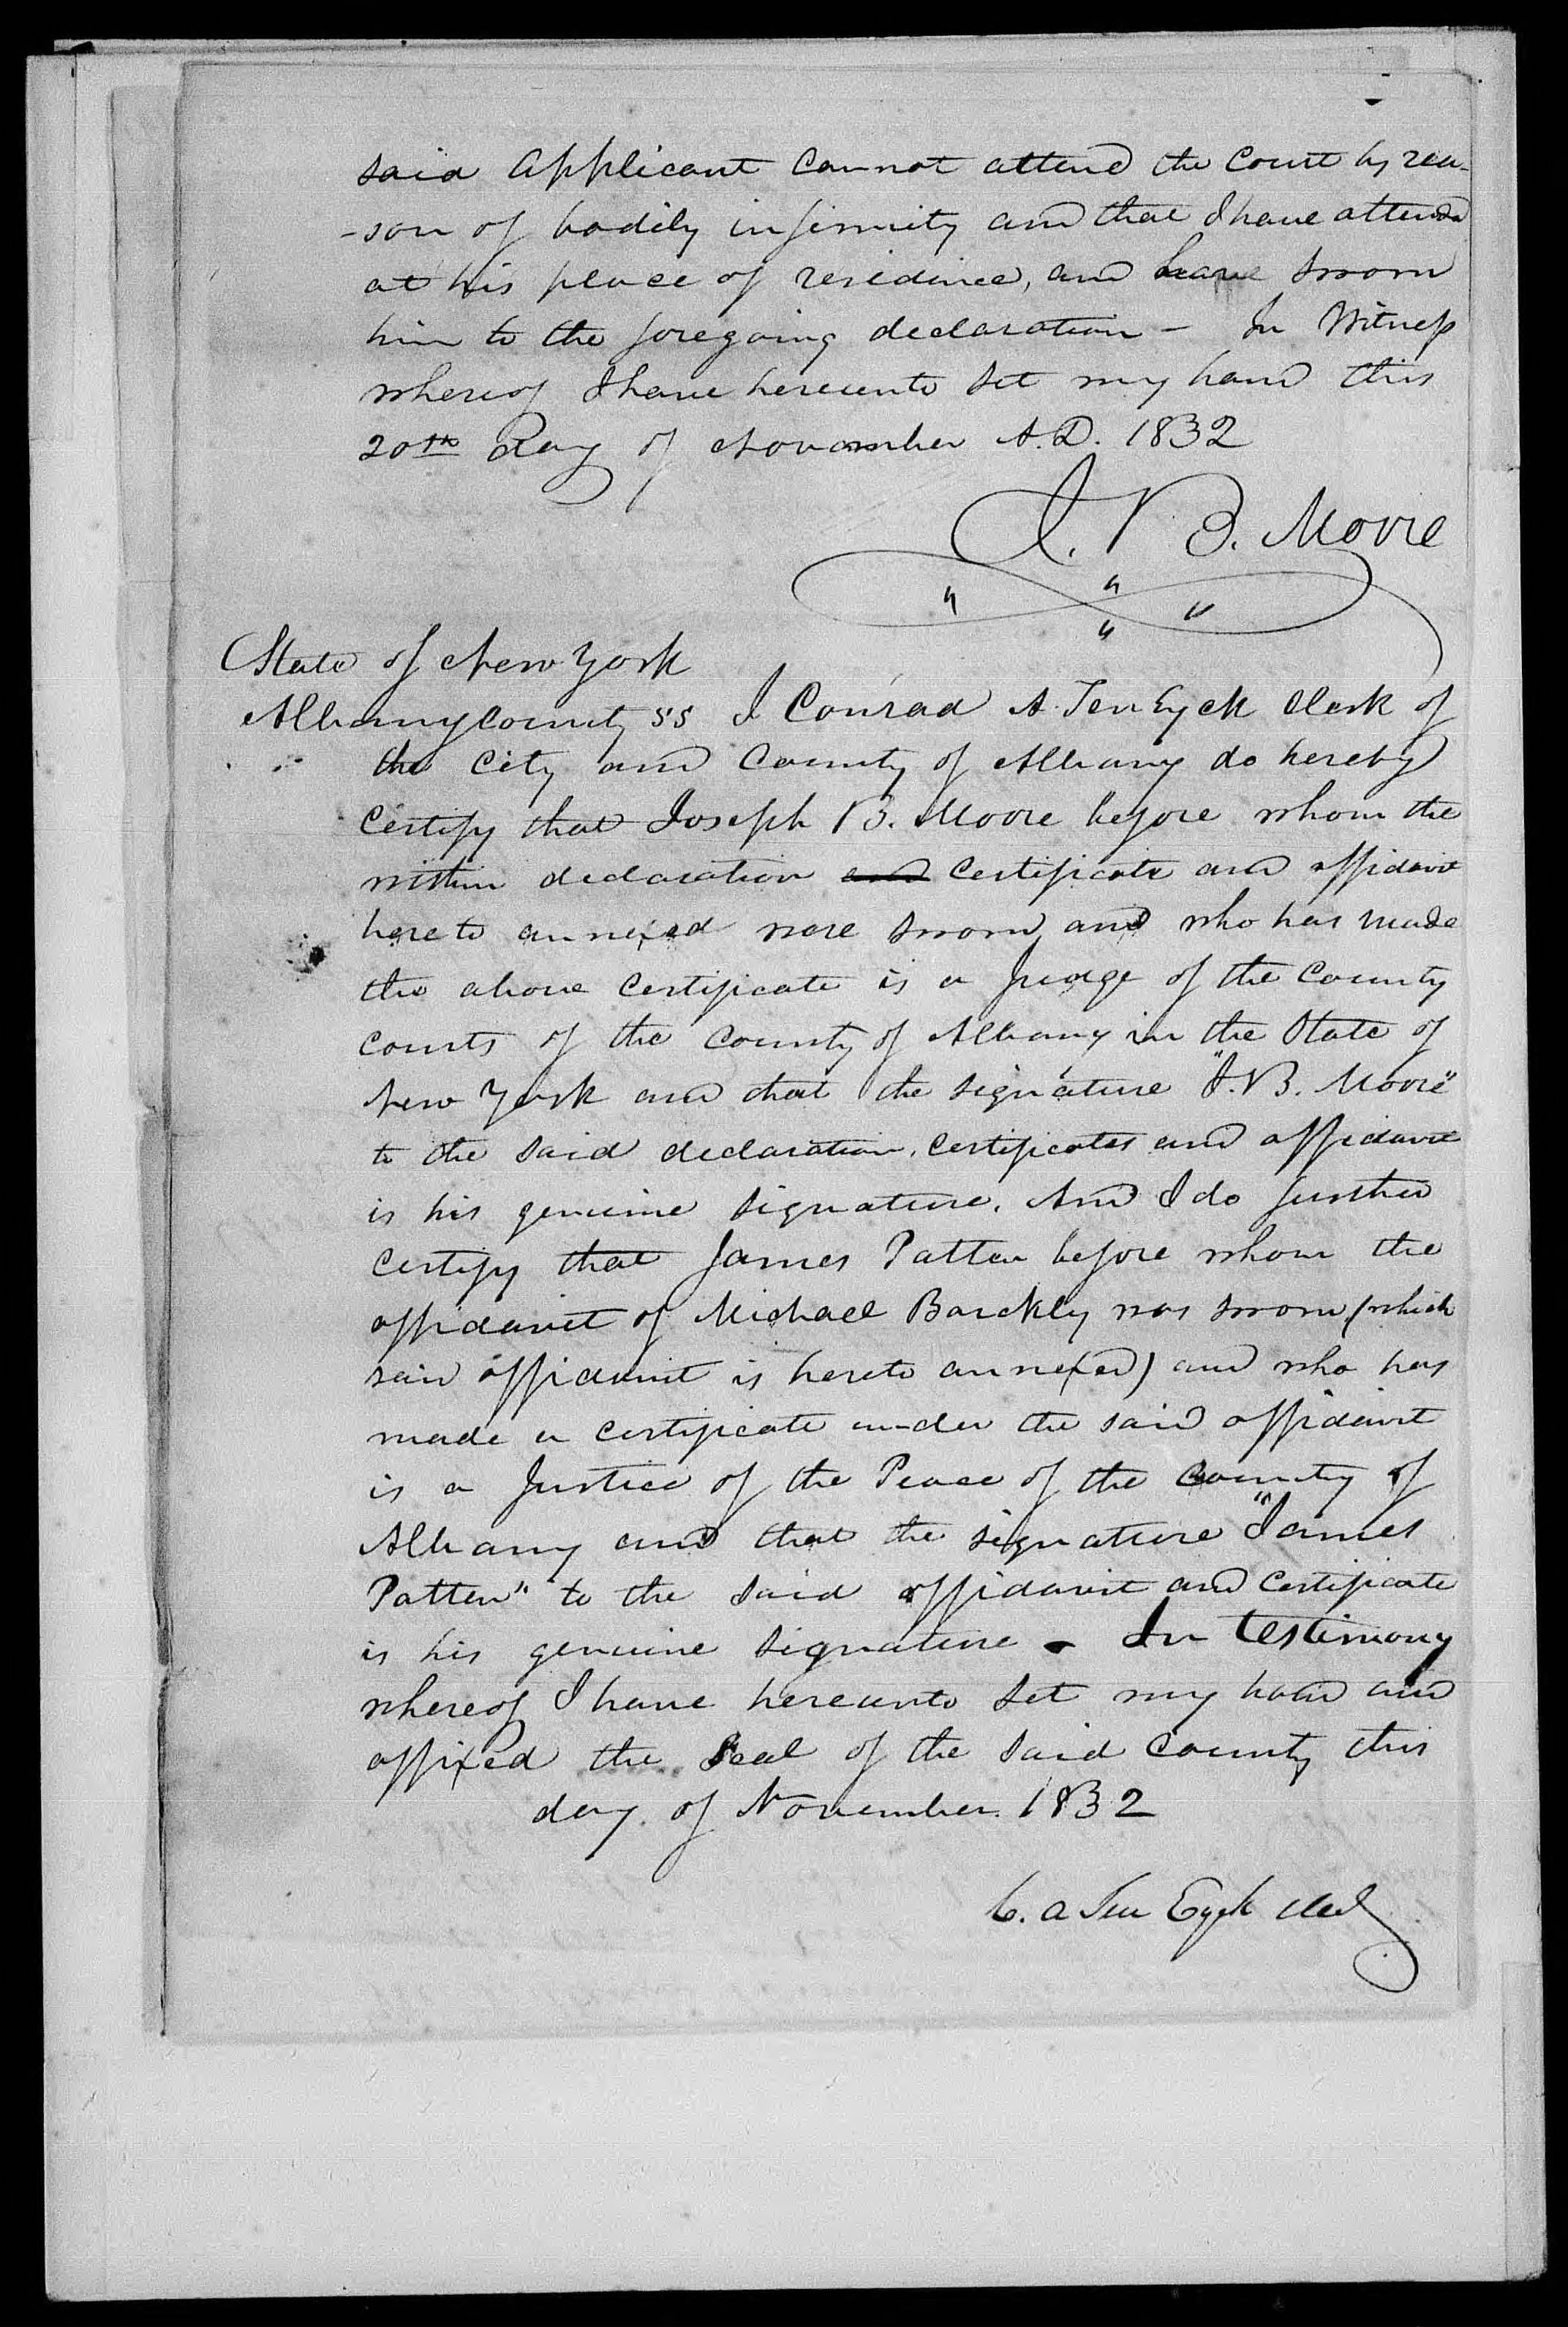 said applicant cannot attend the Court by rea-
-son of bodily infirmity and that I have attended
at his place of residence, and have sworn
him to the foregoing declaration - In Witness
whereof I have hereunto set my hand this
20th Day of November A.D. 1832
J. B. Moore
State of New York
Albany County ss I Conrad A. Ten Eyck Clerk of
the City and County of Albany do hereby
certify that Joseph B. Moore before whom the
within declaration and certificate and affidavit
hereto annexed were sworn, and who has made
the above certificate is a Judge of the County
courts of the County of Albany in the State of
New York and that the signature "J. B. Moore"
to the said declaration, certificates and affidavit
is his genuine signature. And I do further
certify that James Patten before whom the
affidavit of Michael Barckly was sworn, (which
said affidavit is hereto annexed) and who has
made a certificate under the said affidavit
is a Justice of the Peace of the County of
Albany and that the signature "James
Patten" to the said affidavit and certificate
is his genuine signature - In testimony
whereof I have hereunto set my hand and
affixed the Seal of the said County this
day of November. 1832
C. A Ten Eyck Clerk